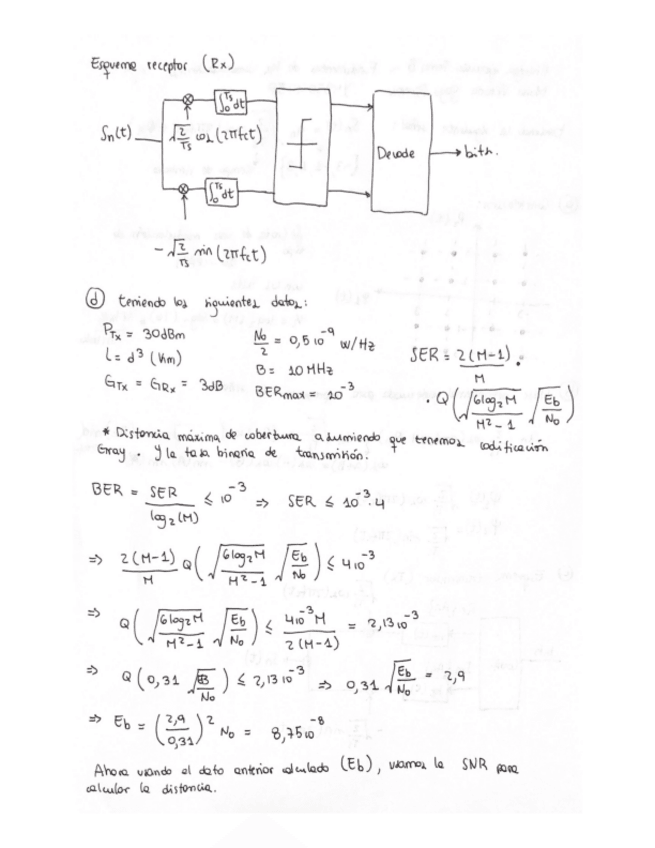 Esquema receptor (Rx)
Sn(t)
√(2/Ts) cos(2πfct)
∫₀^Ts dt
Decode
bits.
∫₀^Ts dt
-√(2/Ts) sin(2πfct)
ⓓ teniendo los siguientes datos:
PTx = 30dBm
L = d³ (Km)
GTx = GRx = 3dB
No/2 = 0,5 10⁻⁹ W/Hz
B = 10 MHz
BERmax = 10⁻³
SER = 2(M-1)/M ·
· Q(√(6log₂M/(M²-1)) √(Eb/No))
* Distancia máxima de cobertura asumiendo que tenemos codificación
Gray. y la tasa binaria de transmisión.
BER = SER/log₂(M) ≤ 10⁻³ ⇒ SER ≤ 10⁻³·4
⇒ 2(M-1)/M Q(√(6log₂M/(M²-1)) √(Eb/No)) ≤ 4 10⁻³
⇒ Q(√(6log₂M/(M²-1)) √(Eb/No)) ≤ 4 10⁻³ M/(2(M-1)) = 2,13 10⁻³
⇒ Q(0,31 √(EB/No)) ≤ 2,13 10⁻³ ⇒ 0,31 √(Eb/No) = 2,9
⇒ Eb = (2,9/0,31)² No = 8,75 10⁻⁸
Ahora usando el dato anterior calculado (Eb), usamos la SNR para
calcular la distancia.